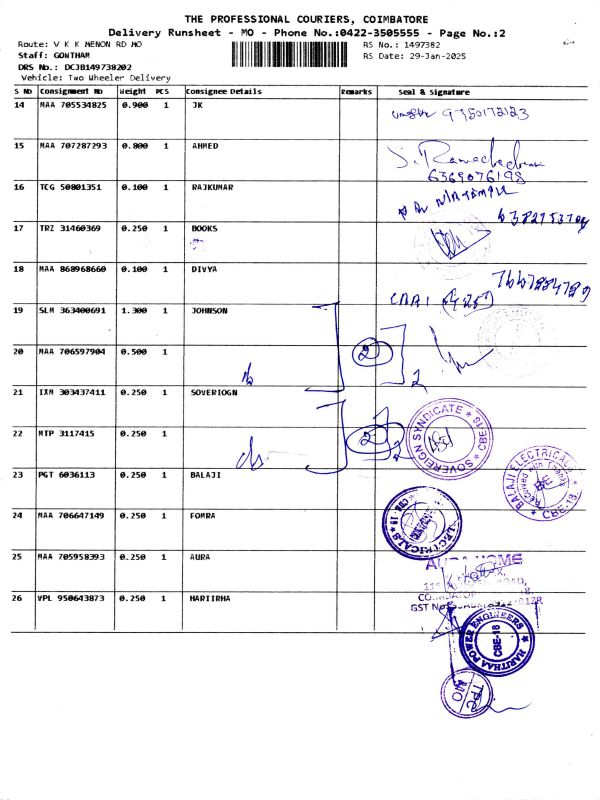 THE PROFESSIONAL COURIERS, COIMBATORE
Delivery Runsheet - MO - Phone No.:0422-3505555 - Page No.:2
Route: V K K MENON RD MO
RS No.: 1497382
Staff: GOWTHAM
RS Date: 29-Jan-2025
DRS No.: DCJB149738202
Vehicle: Two Wheeler Delivery
S NO Consignment NO Weight PCS Consignee Details Remarks Seal & Signature
14 MAA 705534825 0.900 1 JK 9750172123
15 MAA 707287293 0.800 1 AHMED
6369076198
16 TCG 50801351 0.100 1 RAJKUMAR
17 TRZ 31460369 0.250 1 BOOKS
18 MAA 868968660 0.100 1 DIVYA 7667884789
19 SLM 363400691 1.300 1 JOHNSON
20 MAA 706597904 0.500 1 2 2
21 IXM 303437411 0.250 1 SOVERIOGN
SOVEREIGN SYNDICATE ★ CBE-18 ★
22 MTP 3117415 0.250 1 2 2
23 PGT 6036113 0.250 1 BALAJI
BALAJI ELECTRICALS ★ CBE-18
Received with Thanks
24 MAA 706647149 0.250 1 FOMRA
ELECTRICALS
25 MAA 705958393 0.250 1 AURA
AURA HOME
GST No
26 VPL 950643873 0.250 1 HARITRHA
HARITHAA POWER ENGINEERS ★
CBE-18
TPC
MO